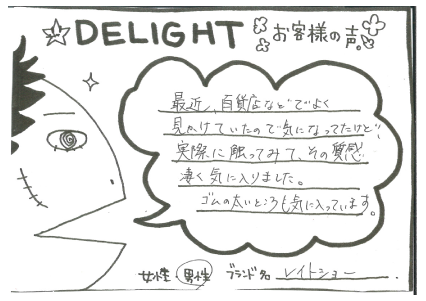 DELIGHT お客様の声。
最近、百貨店などでよく
見かけていたので気になってたけど、
実際に触ってみて、その質感
凄く気に入りました。
ゴムの太いところも気に入っています。
女性 男性 ブランド名 レイトショー